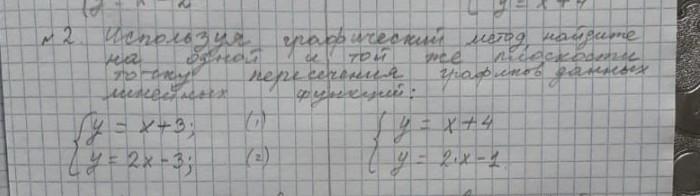 y = x - 2
y = x + 4
№2. Используя графический метод найдите
на одной и той же плоскости
точку пересечения графиков данных
линейных функций:
y = x+3; (1)
y = 2x-3; (2)
y = x+4
y = 2·x-1